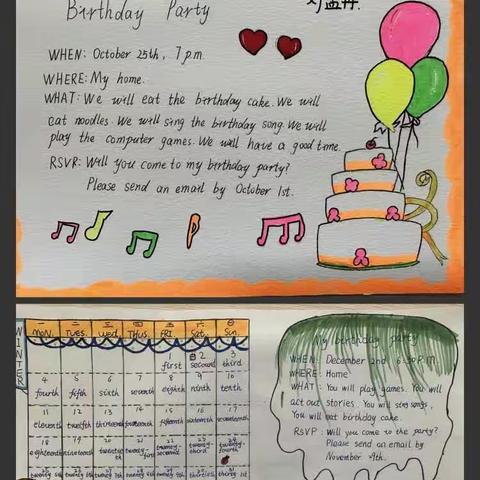 Birthday Party
WHEN: October 25th, 7 p.m
WHERE: My home.
WHAT: We will eat the birthday cake. We will
eat noodles. We will sing the birthday song. We will
play the computer games. We will have a good time.
RSVR: Will you come to my birthday party?
Please send an email by October 1st.
WINTER
MON. TUES. Wed. THUS. FRI. Sat. Sun.
一 二 三 四 五 六 日
1 2 3
first second third
4 5 6 7 8 9 10
fourth fifth sixth seventh eighth ninth tenth
11 12 13 14 15 16 17
eleventh twelfth thirteenth fourteenth fifteenth sixteenth
18 19 20 21 22 23 24
eighteenth nineteenth twentieth twenty-first twenty-second twenty-third twenty-fourth
My birthday party
WHEN: December 2nd 6:30 P.M.
WHERE: Home
WHAT: You will play games. You will
act out stories. You will sing songs.
You will eat birthday cake.
RSVP: Will you come to the party?
Please send an email by
November 9th.